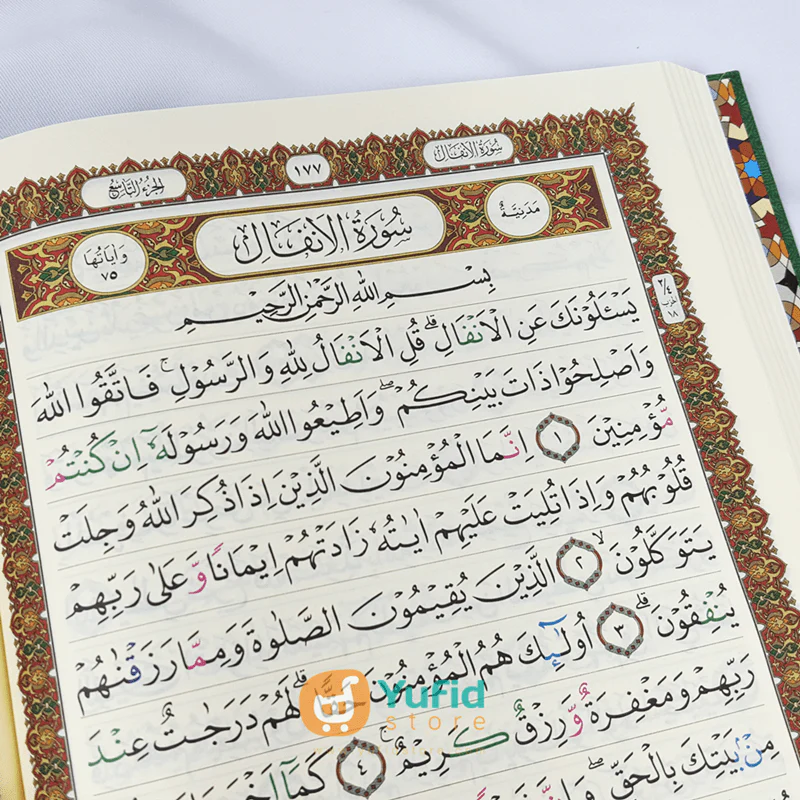 سُوْرَةُ الْاَنْفَالِ
١٧٧
الجُزْءُ التَّاسِعُ
مَدَنِيَّةٌ
سُوْرَةُ الْاَنْفَالِ
وَاٰيَاتُهَا
٧٥
بِسْمِ اللّٰهِ الرَّحْمٰنِ الرَّحِيْمِ
يَسْـَٔلُوْنَكَ عَنِ الْاَنْفَالِۗ قُلِ الْاَنْفَالُ لِلّٰهِ وَالرَّسُوْلِۚ فَاتَّقُوا اللّٰهَ
وَاَصْلِحُوْا ذَاتَ بَيْنِكُمْۖ وَاَطِيْعُوا اللّٰهَ وَرَسُوْلَهٗٓ اِنْ كُنْتُمْ
مُّؤْمِنِيْنَ ١ اِنَّمَا الْمُؤْمِنُوْنَ الَّذِيْنَ اِذَا ذُكِرَ اللّٰهُ وَجِلَتْ
قُلُوْبُهُمْ وَاِذَا تُلِيَتْ عَلَيْهِمْ اٰيٰتُهٗ زَادَتْهُمْ اِيْمَانًا وَّعَلٰى رَبِّهِمْ
يَتَوَكَّلُوْنَۙ ٢ الَّذِيْنَ يُقِيْمُوْنَ الصَّلٰوةَ وَمِمَّا رَزَقْنٰهُمْ
يُنْفِقُوْنَۗ ٣ اُولٰۤىِٕكَ هُمُ الْمُؤْمِنُوْنَ حَقًّاۗ لَهُمْ دَرَجٰتٌ عِنْدَ
رَبِّهِمْ وَمَغْفِرَةٌ وَّرِزْقٌ كَرِيْمٌۚ ٤ كَمَآ اَخْرَجَ
مِنْۢ بَيْتِكَ بِالْحَقِّۖ وَاِنَّ
٢/٤
حزب
١٨
YuFid
store